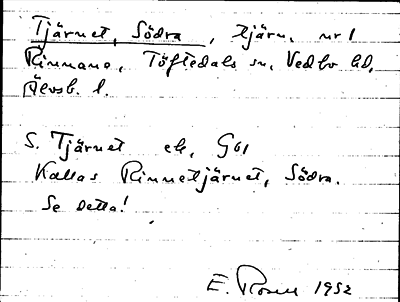 Tjärnet, Södra, tjärn, nr 1
Rinnane, Töftedals sn, Vedbo hd,
Älvsb. l.
S. Tjärnet ek, G61
Kallas Rinnetjärnet, Södra.
Se detta!
E. Rosell 1952